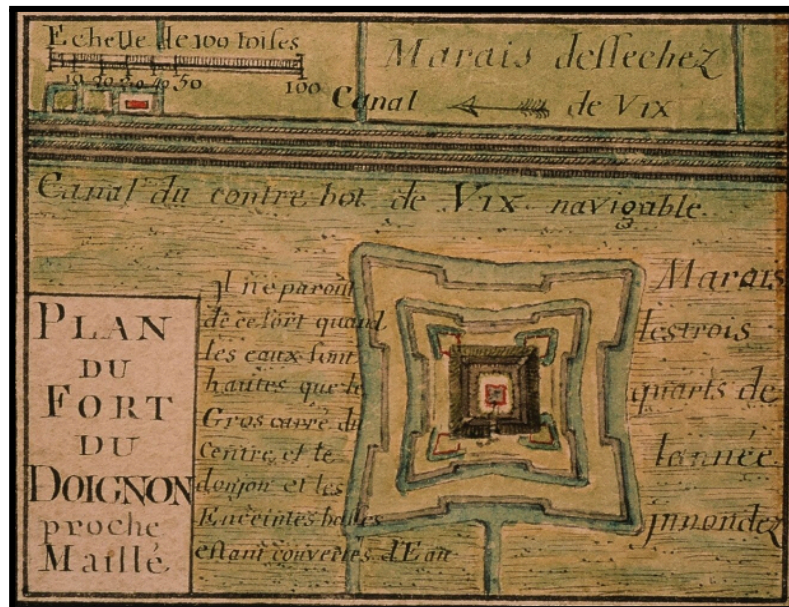 Echelle de 100 toises
10 20 30 40 50 100
Marais dessechez
Canal de Vix
Canal du contre bot de Vix navigable
PLAN
DU
FORT
DU
DOIGNON
proche
Maillé
Il ne paroit
de ce fort quand
les eaux sont
hautes que le
Gros carré du
Centre, et le
donjon et les
Enceintes basses
estant couvertes d'Eau
Marais
les trois
quarts de
lannée
jnnondez